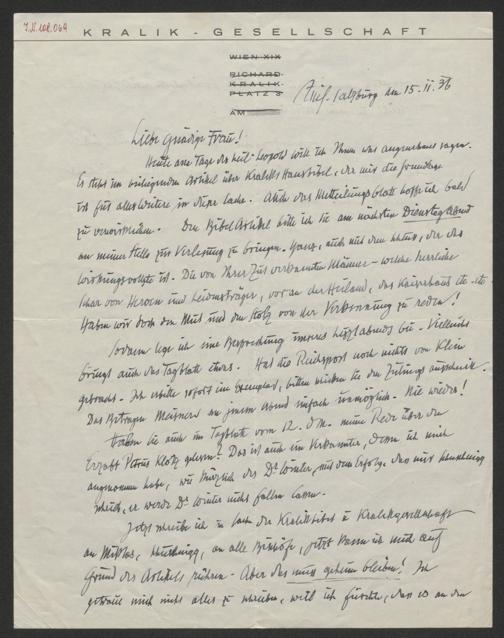 KRALIK - GESELLSCHAFT
WIEN XIX
RICHARD
KRALIK
PLATZ 3
AM
Salzburg am 15. II. 36
Liebe gnädige Frau!
Heute am Tage des heil. Leopold will ich Ihnen was angenehmes sagen.
Es steht im beiliegenden Artikel über Kraliks Hausbibel, der mir die
ist für alles weitere in dieser Sache. Auch das Mitteilungsblatt hoffe ich bald
zu verwirklichen. Den Bibel Artikel bitte ich Sie am nächsten Dienstag Abend
an meiner Stelle zur Verlesung zu bringen. Ganz, auch mit dem Schluss, der das
ist. Die von Ihrer Zeit verkannten Männer - welche herrliche
Schar von Heroen und Leidensträger, voran der Heiland, das Kaiserhaus etc. etc.
Haben wir doch den Mut und den Stolz von der Verkennung zu reden!
Sodann lege ich eine Besprechung unseres Lisztabends bei. Vielleicht
bringt auch das Tagblatt etwas. Hat die Reichspost noch nichts von Klein
gebracht. Ich erbitte sofort ein Exemplar, bitte den Zeitungsausschnitt.
Das Betragen Meixners an jenem Abend einfach unmöglich. Nie wieder!
Haben Sie auch im Tagblatt vom 12. d.M. meine Rede über den
Erzabt Petrus Klotz gelesen? Das ist auch ein Verkannter, dessen ich mich
angenommen habe, wie kürzlich des Dr Winter, mit dem Erfolge, das mir
schrieb, er werde Dr Winter nicht fallen lassen.
Jetzt schreibe ich in Sachen der Kralikbibel u Kralikgesellschaft
an Miklas, Schuschnigg, an alle Bischöfe, jetzt kann ich mich auf
Grund des Artikels rühren - Aber das muss geheim bleiben! Ich
getraue mich nicht alles zu schreiben, weil ich fürchte, dass es an den